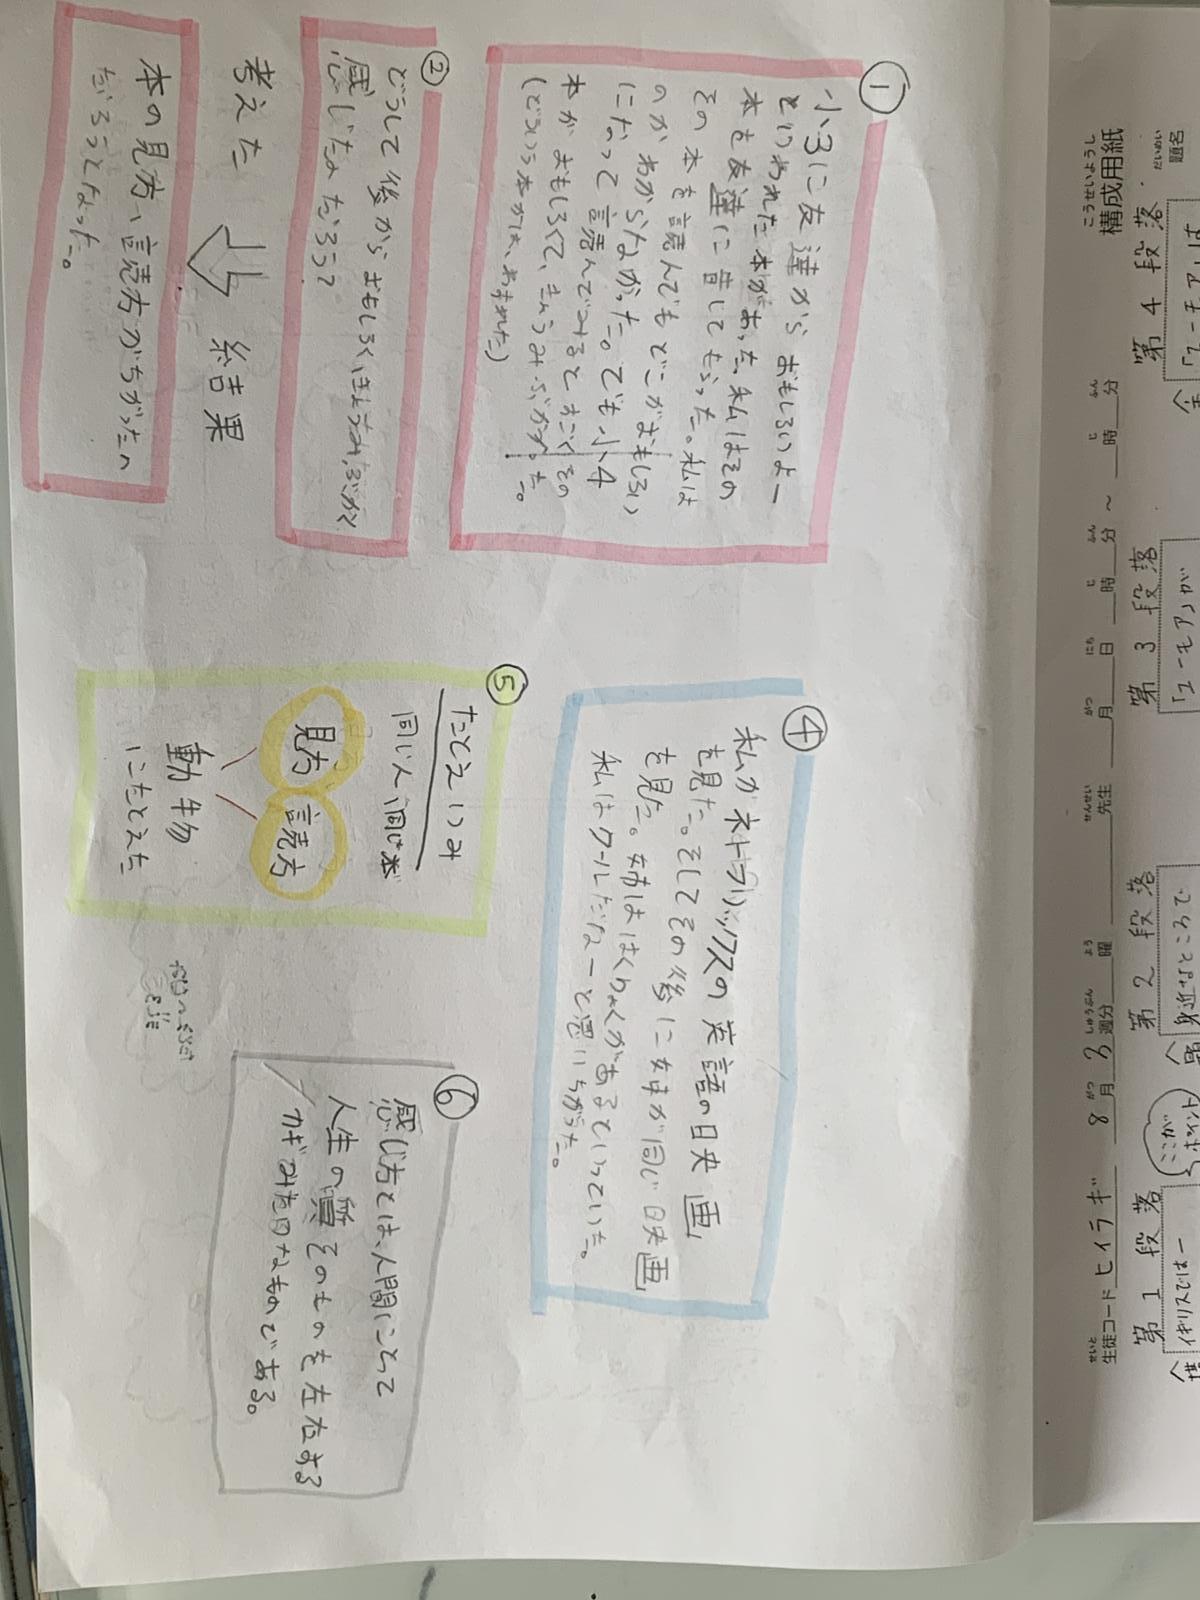 ①
小3に友達からおもしろいよー
といわれた本があった。私はその
本を友達に昔してもらった。私は
その本を読んでもどこがおもしろい
のかわからなかった。でも小4
になって読んでみるとすごくその
本がおもしろくて、きょうみぶかかった。
(どういう本かは、わすれた)
②
どうして後からおもしろくきょうみぶかく
感じたなだろう?
考えた
結果
本の見方、読方がちがったん
だろうとなった。
④
私がネトフリックスの英語の映画
を見た。そしてその後に姉が同じ映画
を見た。姉ははくりょくがあるといっていた。
私はクールだなーと思いちがった。
⑤
たとえいつみ
同じ人、同じ本
見方
読方
動物
にたとえた
⑥
感じ方とは、人間にとって
人生の質そのものを左右する
カギみた日なものである。
こうせいようし
構成用紙
だいめい
題名
第4段落
第3段落
第2段落
第1段落
「ユーモア」は
「ユーモア」が
身近なところで
イギリスでは一
ここが
ポイント
せいと
生徒コード ヒイラギ
8月3週分
がつ しゅうぶん
曜
よう
先生
せんせい
月 日 時 分 ~ 時 分
がつ にち じ ふん じ ふん